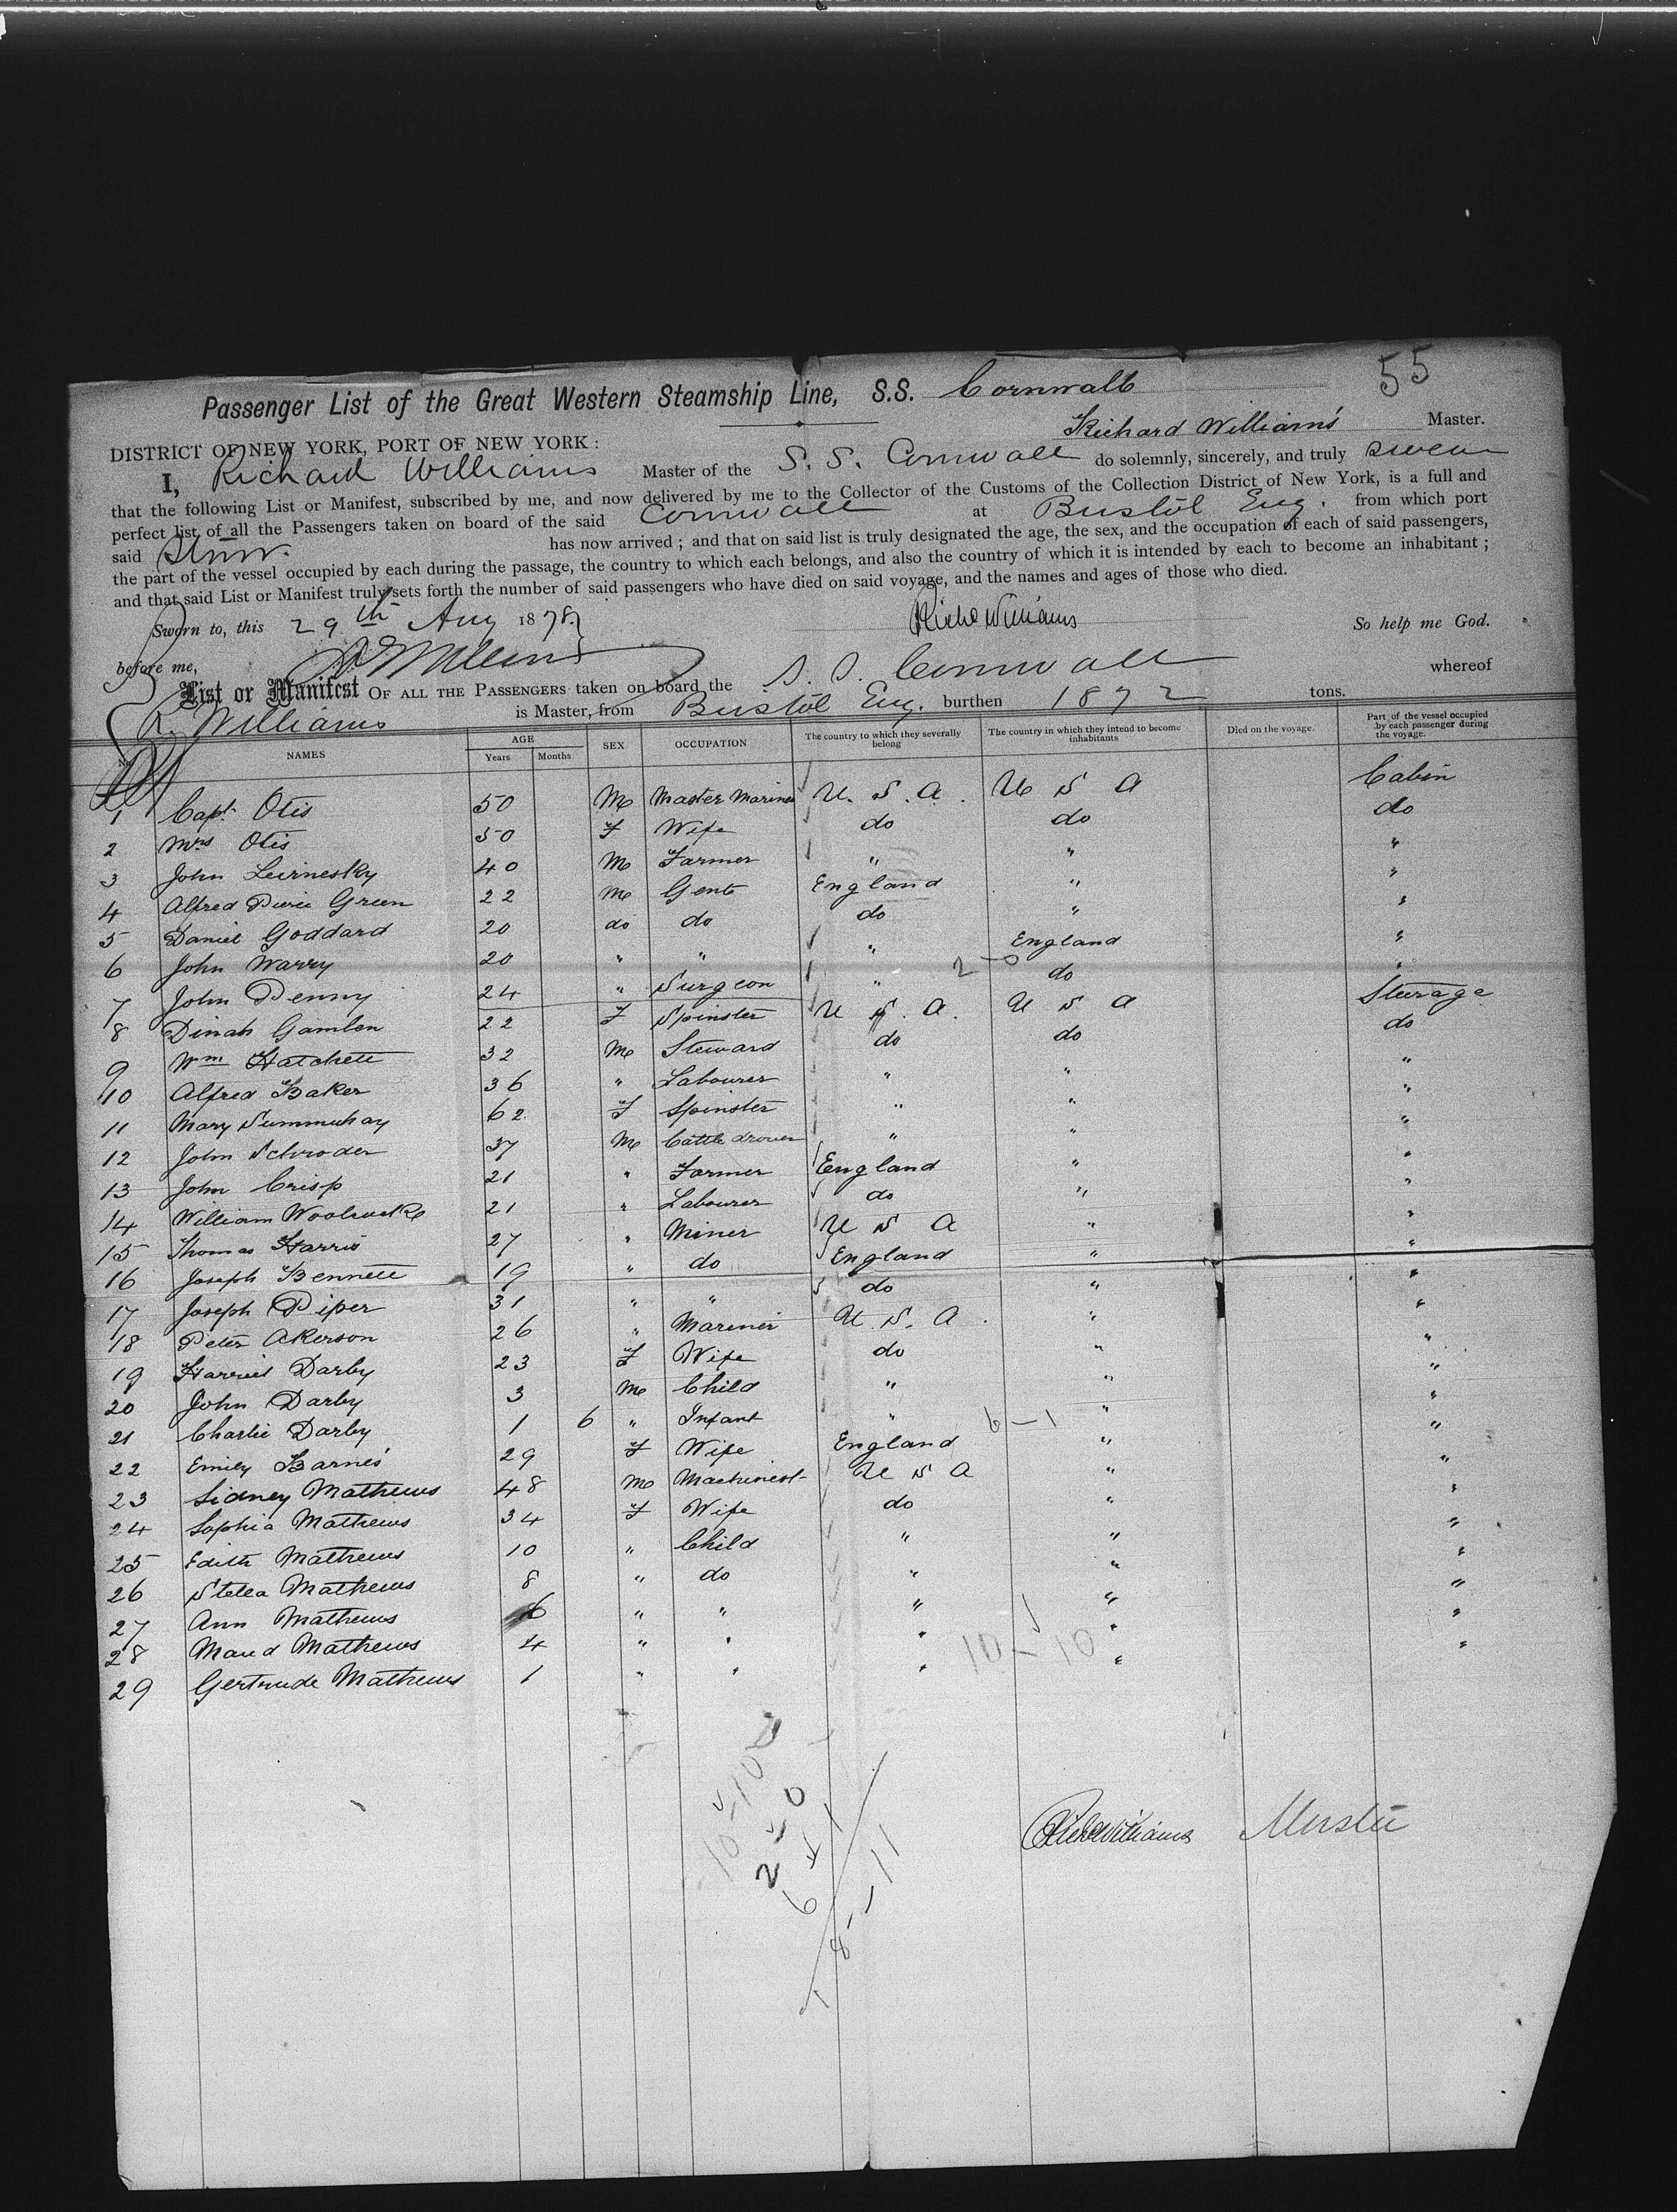 55
Passenger List of the Great Western Steamship Line, S.S. Cornwall
Richard Williams Master.
DISTRICT OF NEW YORK, PORT OF NEW YORK :
I, Richard Williams Master of the S. S. Cornwall do solemnly, sincerely, and truly swear
that the following List or Manifest, subscribed by me, and now delivered by me to the Collector of the Customs of the Collection District of New York, is a full and
perfect list of all the Passengers taken on board of the said Cornwall at Bristol Eng. from which port
said Stmr. has now arrived ; and that on said list is truly designated the age, the sex, and the occupation of each of said passengers,
the part of the vessel occupied by each during the passage, the country to which each belongs, and also the country of which it is intended by each to become an inhabitant ;
and that said List or Manifest truly sets forth the number of said passengers who have died on said voyage, and the names and ages of those who died.
Sworn to, this 29th Aug 1878. Richd Williams So help me God.
before me,
List or Manifest OF ALL THE PASSENGERS taken on board the S. S. Cornwall whereof
R. Williams is Master, from Bristol Eng. burthen 1872 tons.
No. NAMES AGE Years Months SEX OCCUPATION The country to which they severally belong The country in which they intend to become inhabitants Died on the voyage. Part of the vessel occupied by each passenger during the voyage.
1 Capt. Otis 50 M Master Mariner U. S. A. U S A Cabin
2 Mrs Otis 50 F Wife do do do
3 John 40 M Farmer " " "
4 Alfred Green 22 M Gent England " "
5 Daniel Goddard 20 do do do " "
6 John Warry 20 " " " England "
7 John Penny 24 " Surgeon " 2-0 do "
8 Dinah Gamblen 22 F Spinster U. S. A. U S A Steerage
9 Wm Hatchett 32 M Steward do do do
10 Alfred Baker 36 " Labourer " " "
11 Mary Summuhay 62 F Spinster " " "
12 John Schroder 37 M Cattle drover " " "
13 John Crisp 21 " Farmer England " "
14 William 21 " Labourer do " "
15 Thomas Harris 27 " Miner U S A " "
16 Joseph Bennett 19 " do England " "
17 Joseph Piper 31 " " do " "
18 Peter Akerson 26 " Mariner U. S. A. " "
19 Harriet Darby 23 F Wife do " "
20 John Darby 3 M Child " " "
21 Charlie Darby 1 6 " Infant " 6-1 " "
22 Emily Barnes 29 F Wife England " "
23 Sidney Mathews 48 M Machinest U S A " "
24 Sophia Mathews 34 F Wife do " "
25 Edith Mathews 10 " Child " " "
26 Stella Mathews 8 " do " " "
27 Ann Mathews 6 " " " " "
28 Maud Mathews 4 " " " " "
29 Gertrude Mathews 1 " " " 10-10 " "
10-10
2-0
6-1
18-11
Richd Williams Master